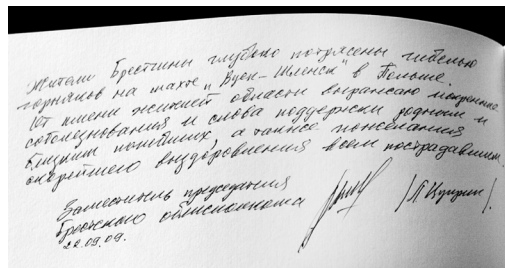 Жители Брестчины глубоко потрясены гибелью
горняков на шахте „Вуек-Шленск" в Польше.
От имени жителей области выражаю искренние
соболезнования и слова поддержки родным и
близким погибших, а также пожелания
скорейшего выздоровления всем пострадавшим.
Заместитель председателя
Брестского облисполкома
22.09.09.